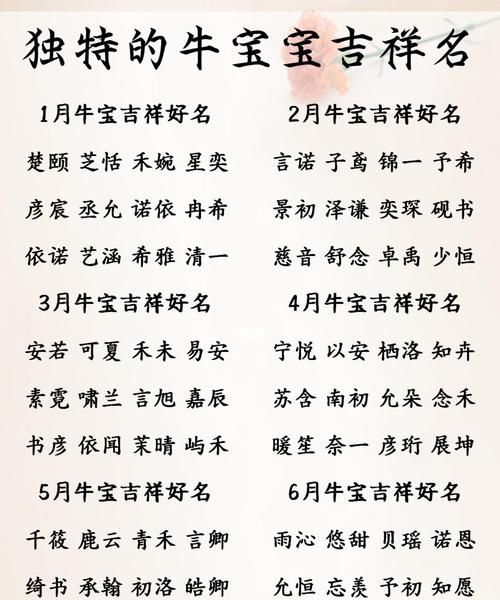 独特的牛宝宝吉祥名
1月牛宝吉祥好名
楚颐 芝恬 禾婉 星奕
彦宸 丞允 诺依 冉希
依诺 艺涵 希雅 清一
2月牛宝吉祥好名
言诺 子鸢 锦一 予希
景初 泽谦 奕琛 砚书
慈音 舒念 卓禹 少恒
3月牛宝吉祥好名
安若 可夏 禾未 易安
素霓 啸兰 言旭 嘉辰
书彦 依闻 茉晴 屿禾
4月牛宝吉祥好名
宁悦 以安 栖洛 知卉
苏含 南初 允朵 念禾
暖笙 奈一 彦珩 展坤
5月牛宝吉祥好名
千筱 鹿云 青禾 言卿
绮书 承翰 初洛 皓卿
6月牛宝吉祥好名
雨沁 悠甜 贝瑶 诺恩
允恒 忘羡 予初 知愿